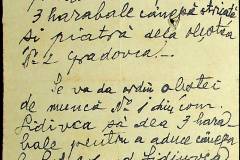 3 harabale cânepă stricată
si piatră dela obștea
No. 2 gradovca.
Se va da ordin obstei
de muncă No. 1 din com.
Lidivca să dea 3 hara
bale pentru a aduce cânepa
Lidiovca